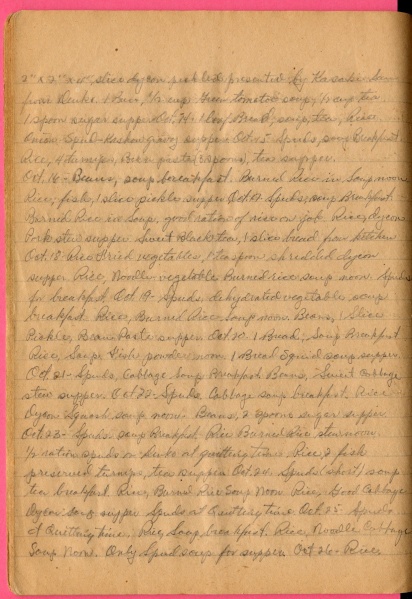 2" x 2" x 10" slice dycon pickled presented by Kasaki
from Denke. 1 Bun, 1/2 cup Green tomatoe soup, 1/2 cup tea
1 spoon sugar supper Oct. 14- 1 loaf Bread; soup, tea, Rice
Onion- Spud- gravy supper. Oct. 15- Spuds, soup Breakfast
Rice, 4 turnips, Bean paste (2 spoons), tea supper.
Oct. 16- Beans, soup breakfast. Burned Rice in Soup noon.
Rice, fish, 1 slice pickle supper Oct. 17- Spuds; soup Breakfast.
Burned Rice in Soup, good ration of rice on job. Rice, dycon
Pork stew supper. Sweet Black tea, 1 slice bread from kitchen
Oct. 18- Rice Fried vegetables, 1 teaspoon shredded dycon
supper Rice, Noodle- vegetable Burned rice soup noon. Spuds
for breakfast. Oct. 19- Spuds, dehydrated vegetable soup
breakfast. Rice, Burned Rice, Soup noon. Beans, 1 Slice
Pickle, Bean Paste supper. Oct. 20. 1 Bread, Soup Breakfast
Rice, Soup, Fish powder noon. 1 Bread Squid soup supper.
Oct. 21- Spuds, Cabbage Soup Breakfast Beans, Sweet Cabbage
stew supper. Oct. 22- Spuds, Cabbage soup breakfast. Rice
Dycon Squash soup noon- Beans, 2 spoons sugar supper
Oct. 23- Spuds, soup Breakfast. Rice Burned Rice stew noon.
1/2 ration spuds on at quitting time. Rice, 2 fish
preserved turnips, tea supper Oct. 24. Spuds (short) soup
tea breakfast. Rice, Burned Rice Soup Noon. Rice, Good Cabbage
Dycon Soup supper. Spuds at Quitting time Oct. 25- Spuds
at Quitting time. Rice, Soup, breakfast. Rice, Noodle Cabbage
Soup Noon. Only Spud soup for supper. Oct. 26- Rice,